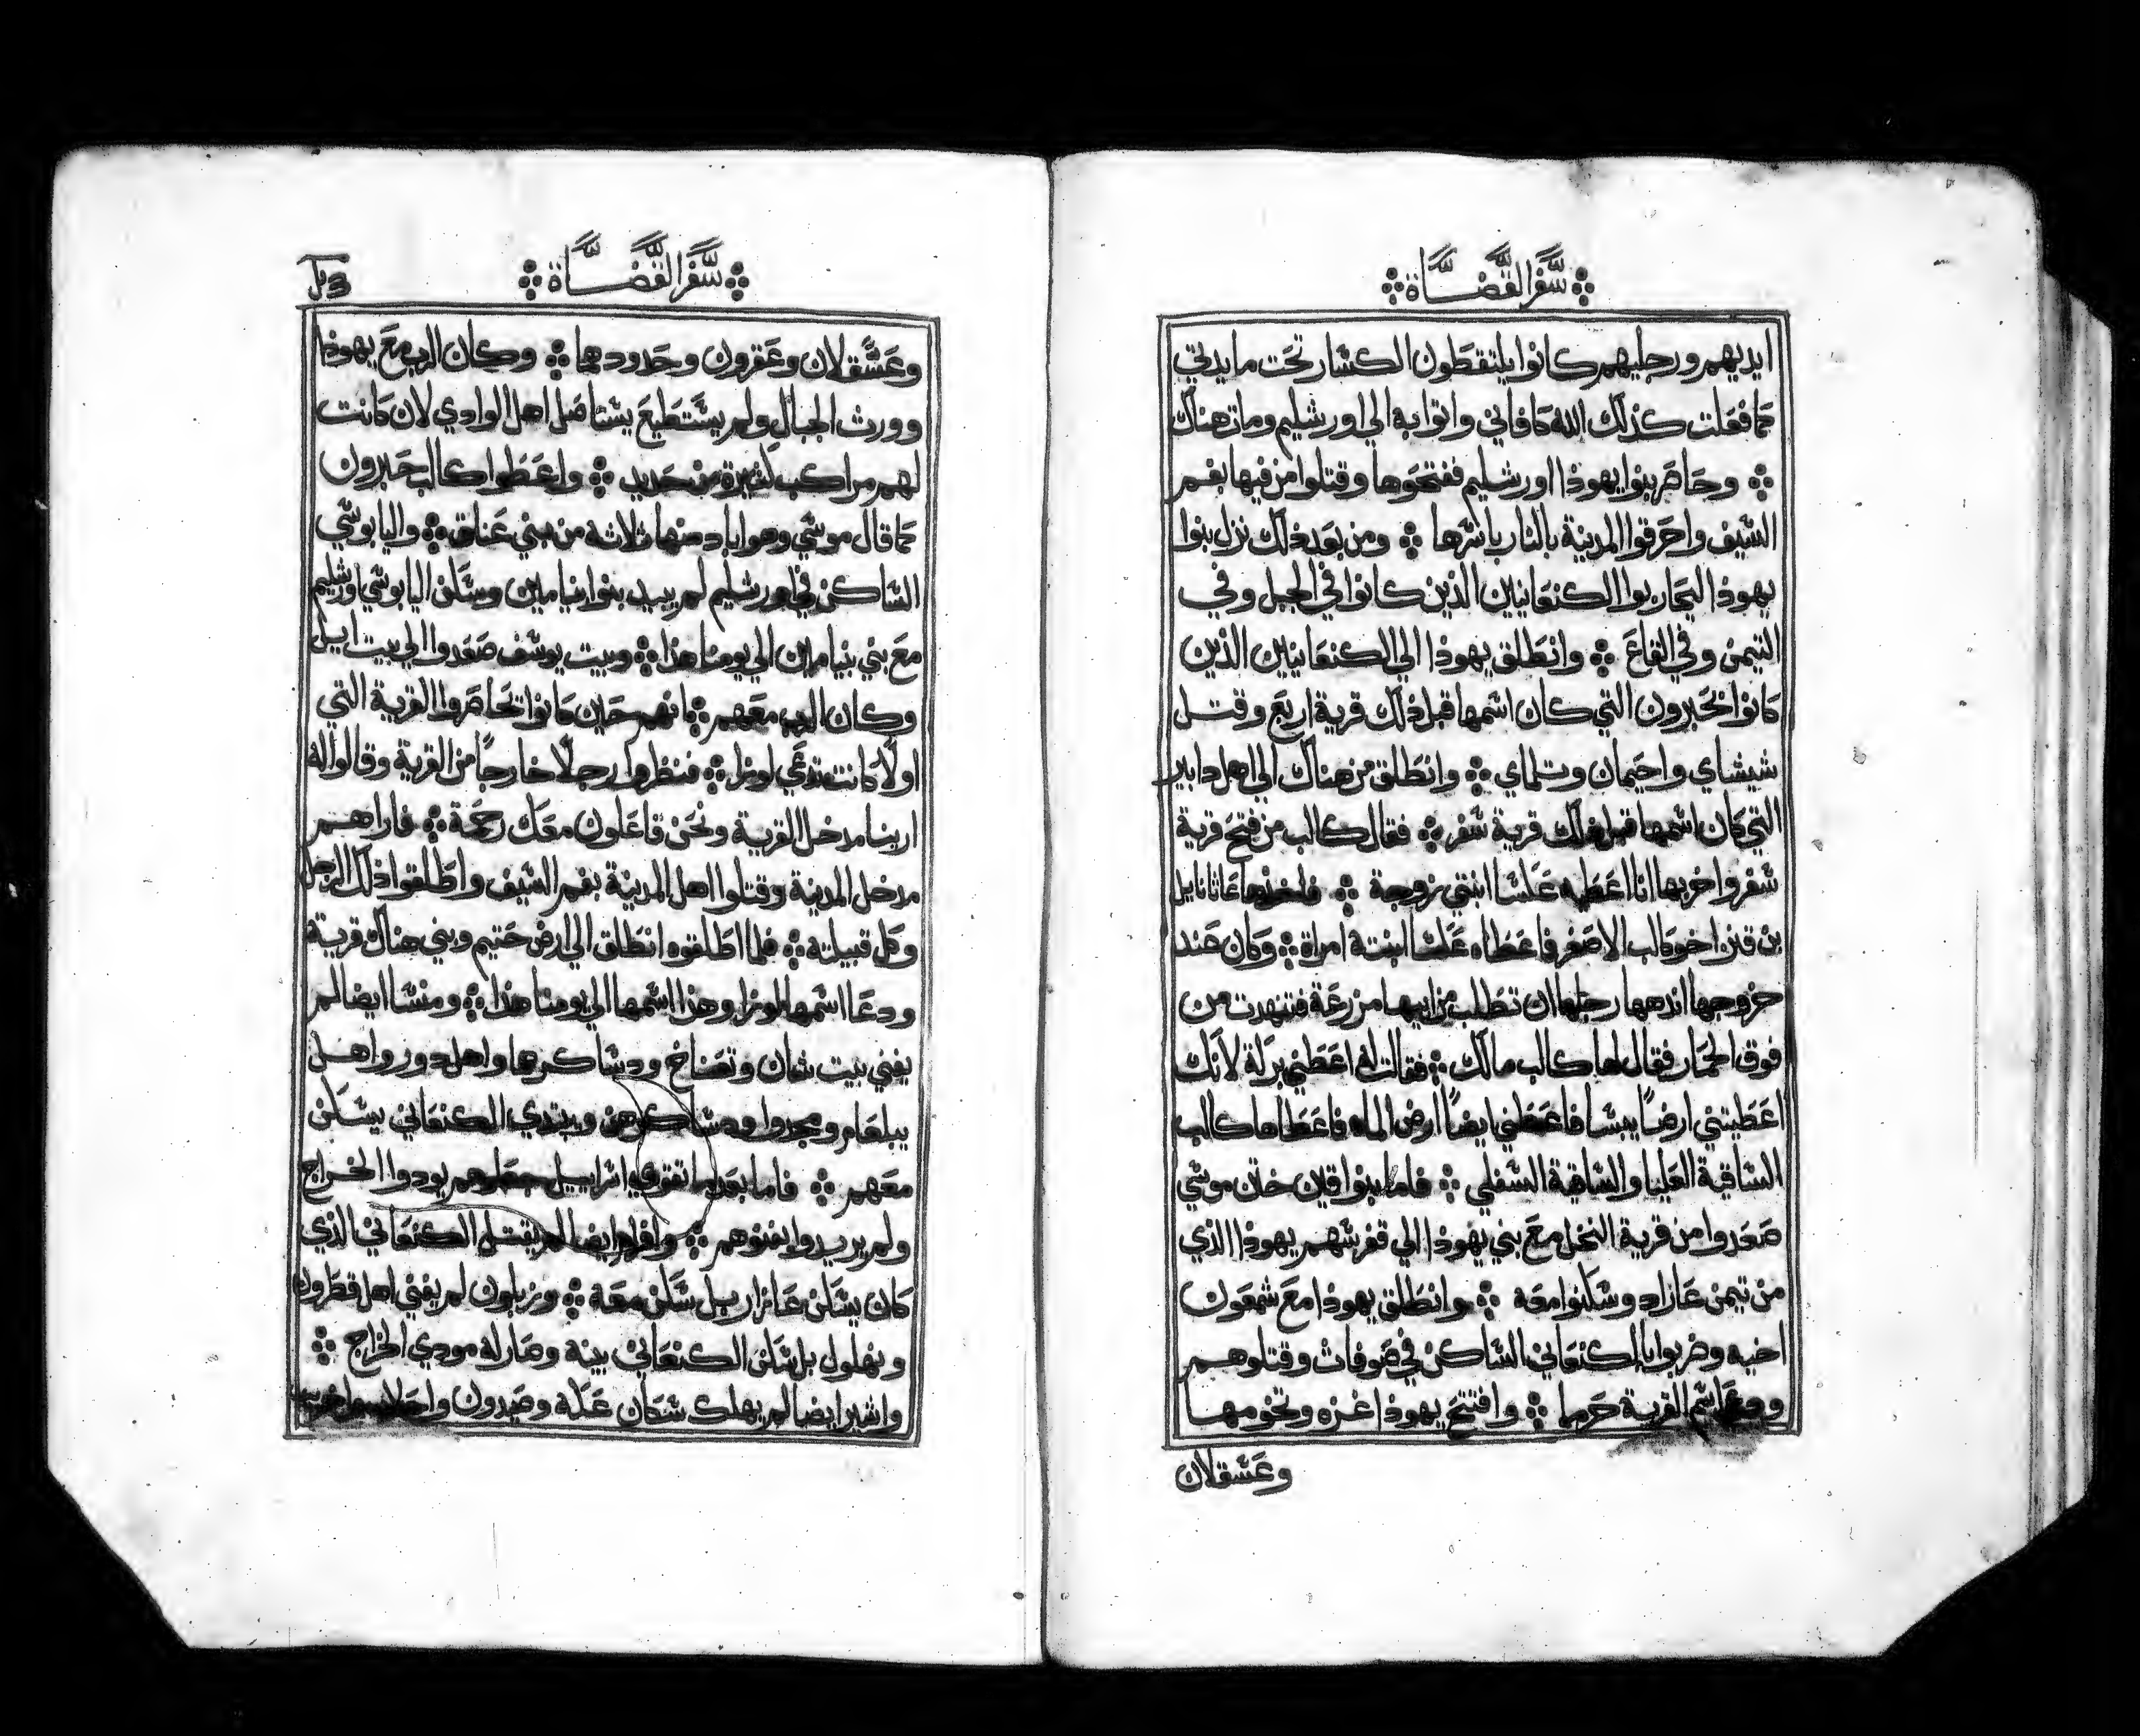 سفر القضاة
ايديهم ورجليهم كانوا يلتقطون الكسار تحت مايدتي
كما فعلت كذلك الله كافاني واتوا به الي اورشليم ومات هناك
وحاصر بنوا يهوذا اورشليم ففتحوها وقتلوا من فيها بفم
السيف واحرقوا المدينة بالنار باسرها ومن بعد ذلك نزل بنوا
يهوذا ليحاربوا الكنعانيين الذين كانوا في الجبل وفي
التيمن وفي القاع وانطلق يهوذا الي الكنعانيين الذين
كانوا بحبرون التي كان اسمها قبل ذلك قرية اربع وقتل
شيشاي واحيمان وتلماي وانطلق من هناك الي اهل دابير
التي كان اسمها قبل ذلك قرية سفر فقال كالب من فتح قرية
سفر واخربها انا اعطيه عكسا ابنتي زوجة فاخذها عاثانايل
بن قنز اخو كالب الاصغر فاعطاه عكسا ابنته امراة وكان عند
خروجها اندهها رجلها ان تطلب من ابيها مزرعة فتنهدت من
فوق الحمار فقال لها كالب مالك فقالت له اعطني بركة لانك
اعطيتني ارضا يبسا فاعطني ايضا ارض الماء فاعطاها كالب
الساقية العليا والساقية السفلي فاما بنوا قين ختن موسي
صعدوا من قرية النخل مع بني يهوذا الي قفر سهم يهوذا الذي
من تيمن عاراد وسكنوا معه وانطلق يهوذا مع شمعون
اخيه وضربوا الكنعاني الساكن في صوفات وقتلوهم
ودعا اسم القرية حرما وافتتح يهوذا غزه وتخومها
وعسقلان
سفر القضاة
وعسقلان وعقرون وحدودهما وكان الرب مع يهوذا
وورث الجبال ولم يستطيع يستاصل اهل الوادي لان كانت
لهم مراكب كثيرة من حديد واعطوا كالب حبرون
كما قال موسي وهو اباد منها ثلاثه من بني عناق واليابوسي
الساكن في اورشليم لم يبيد بنوا بنيامين وسكن اليابوسي اورشليم
مع بني بنيامين الي يومنا هذا وبيت يوسف صعدوا الي بيت ايل
وكان الرب معهم انهم حين كانوا يحاصروا القرية التي
اولا كانت تدعي لوزا فنظروا رجلا خارجا من القرية وقالوا له
ارينا مدخل القرية ونحن فاعلون معك رحمة فاراهم
مدخل المدينة وقتلوا اهل المدينة بفم السيف واطلقوا ذلك الرجل
وكل قبيلته فلما اطلقوه انطلق الي ارض حتيم وبني هناك قرية
ودعا اسمها لوزا وهذا اسمها الي يومنا هذا ومنسا ايضا لم
يفني بيت شان وتعناخ ودساكرها واهل دور واهل
يبلعام ومجدوا ودساكرهن وبتدي الكنعاني يسكن
معهم فاما بعد ما تقوي اسراييل جعلوهم يودوا الخراج
ولم يريدوا يفنوهم وافرام ايضا لم يقتل الكنعاني الذي
كان يسكن عازار بل سكن معه وزبلون لم يفني اهل قطرون
ونهلول بل سكن الكنعاني بينه وصار له مودي الخراج
واشير ايضا لم يهلك سكان عكه وصيدون